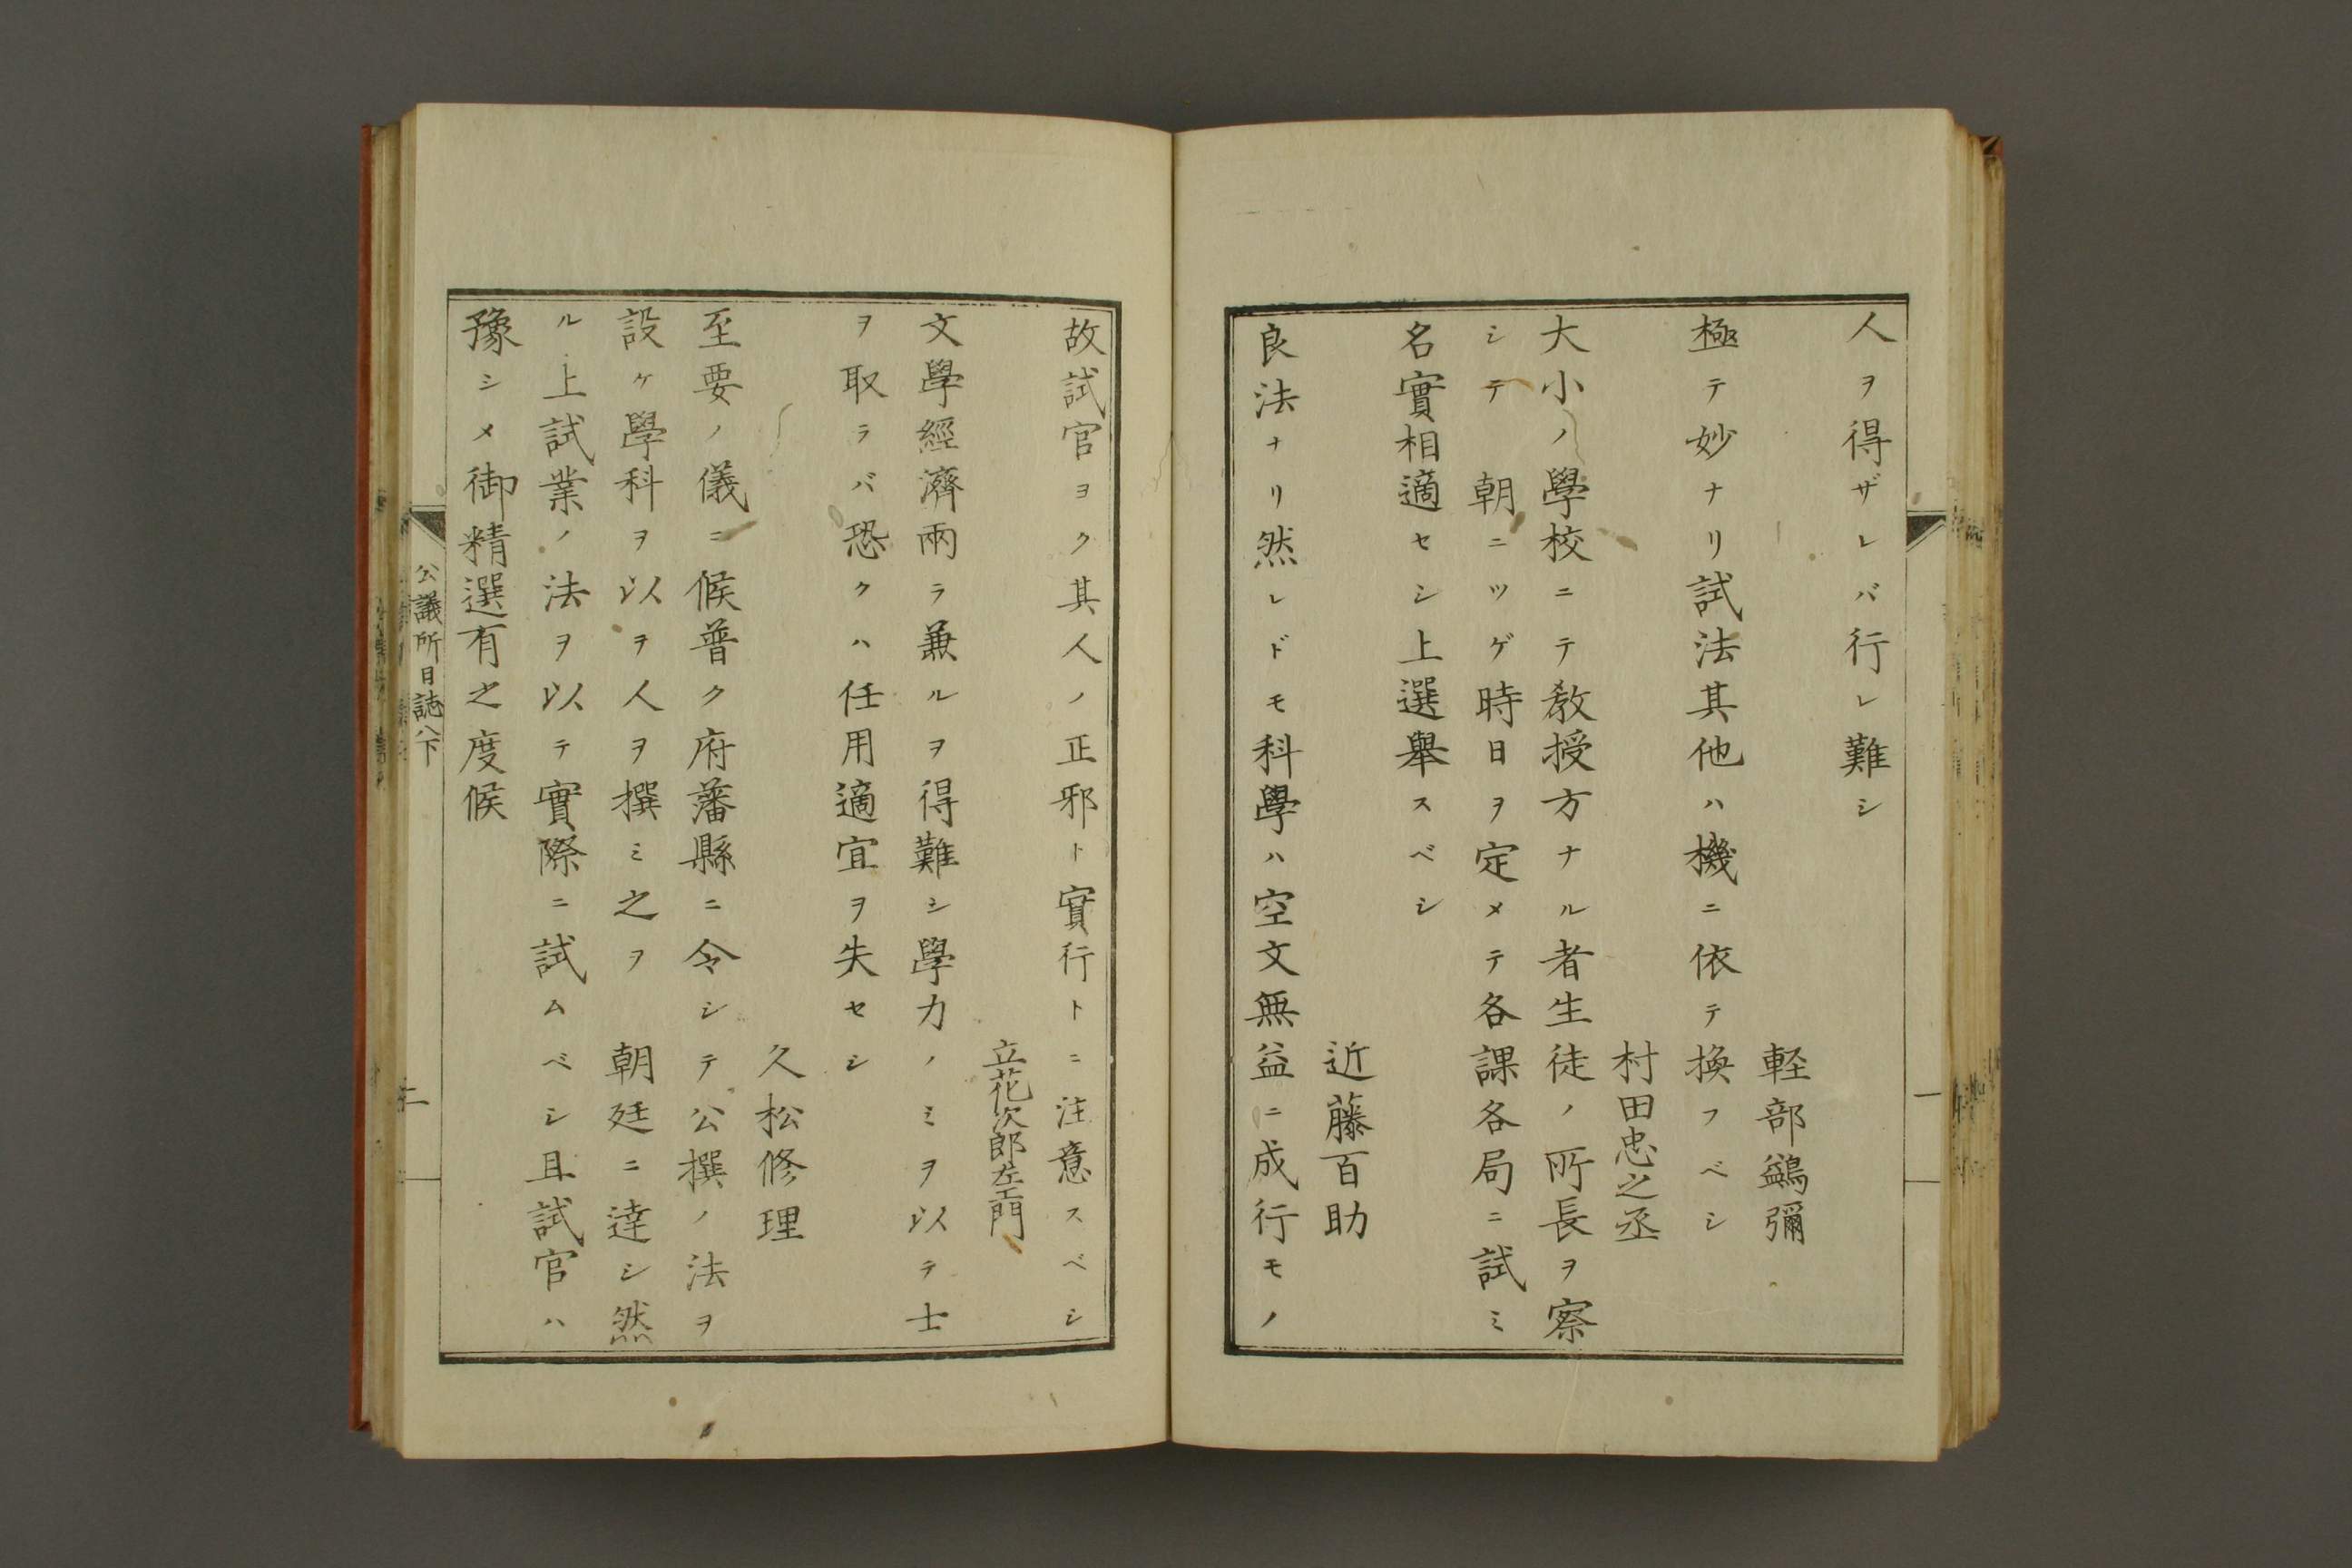 人ヲ得ザレバ行レ難シ
軽部鷁彌
極テ妙ナリ試法其他ハ機ニ依テ換フベシ
村田忠之丞
大小ノ學校ニテ教授方ナル者生徒ノ所長ヲ察
シテ 朝ニツゲ時日ヲ定メテ各課各局ニ試ミ
名實相適セシ上選舉スベシ
近藤百助
良法ナリ然レドモ科學ハ空文無益ニ成行モノ
故試官ヨク其人ノ正邪ト實行トニ注意スベシ
立花次郎左エ門
文學經濟兩ラ兼ルヲ得難シ學力ノミヲ以テ士
ヲ取ラバ恐クハ任用適宜ヲ失セシ
久松修理
至要ノ儀ニ候普ク府藩縣ニ令シテ公撰ノ法ヲ
設ケ學科ヲ以ヲ人ヲ撰ミ之ヲ 朝廷ニ達シ然
ル上試業ノ法ヲ以テ實際ニ試ムベシ且試官ハ
豫シメ御精選有之度候
公議所日誌八下
二